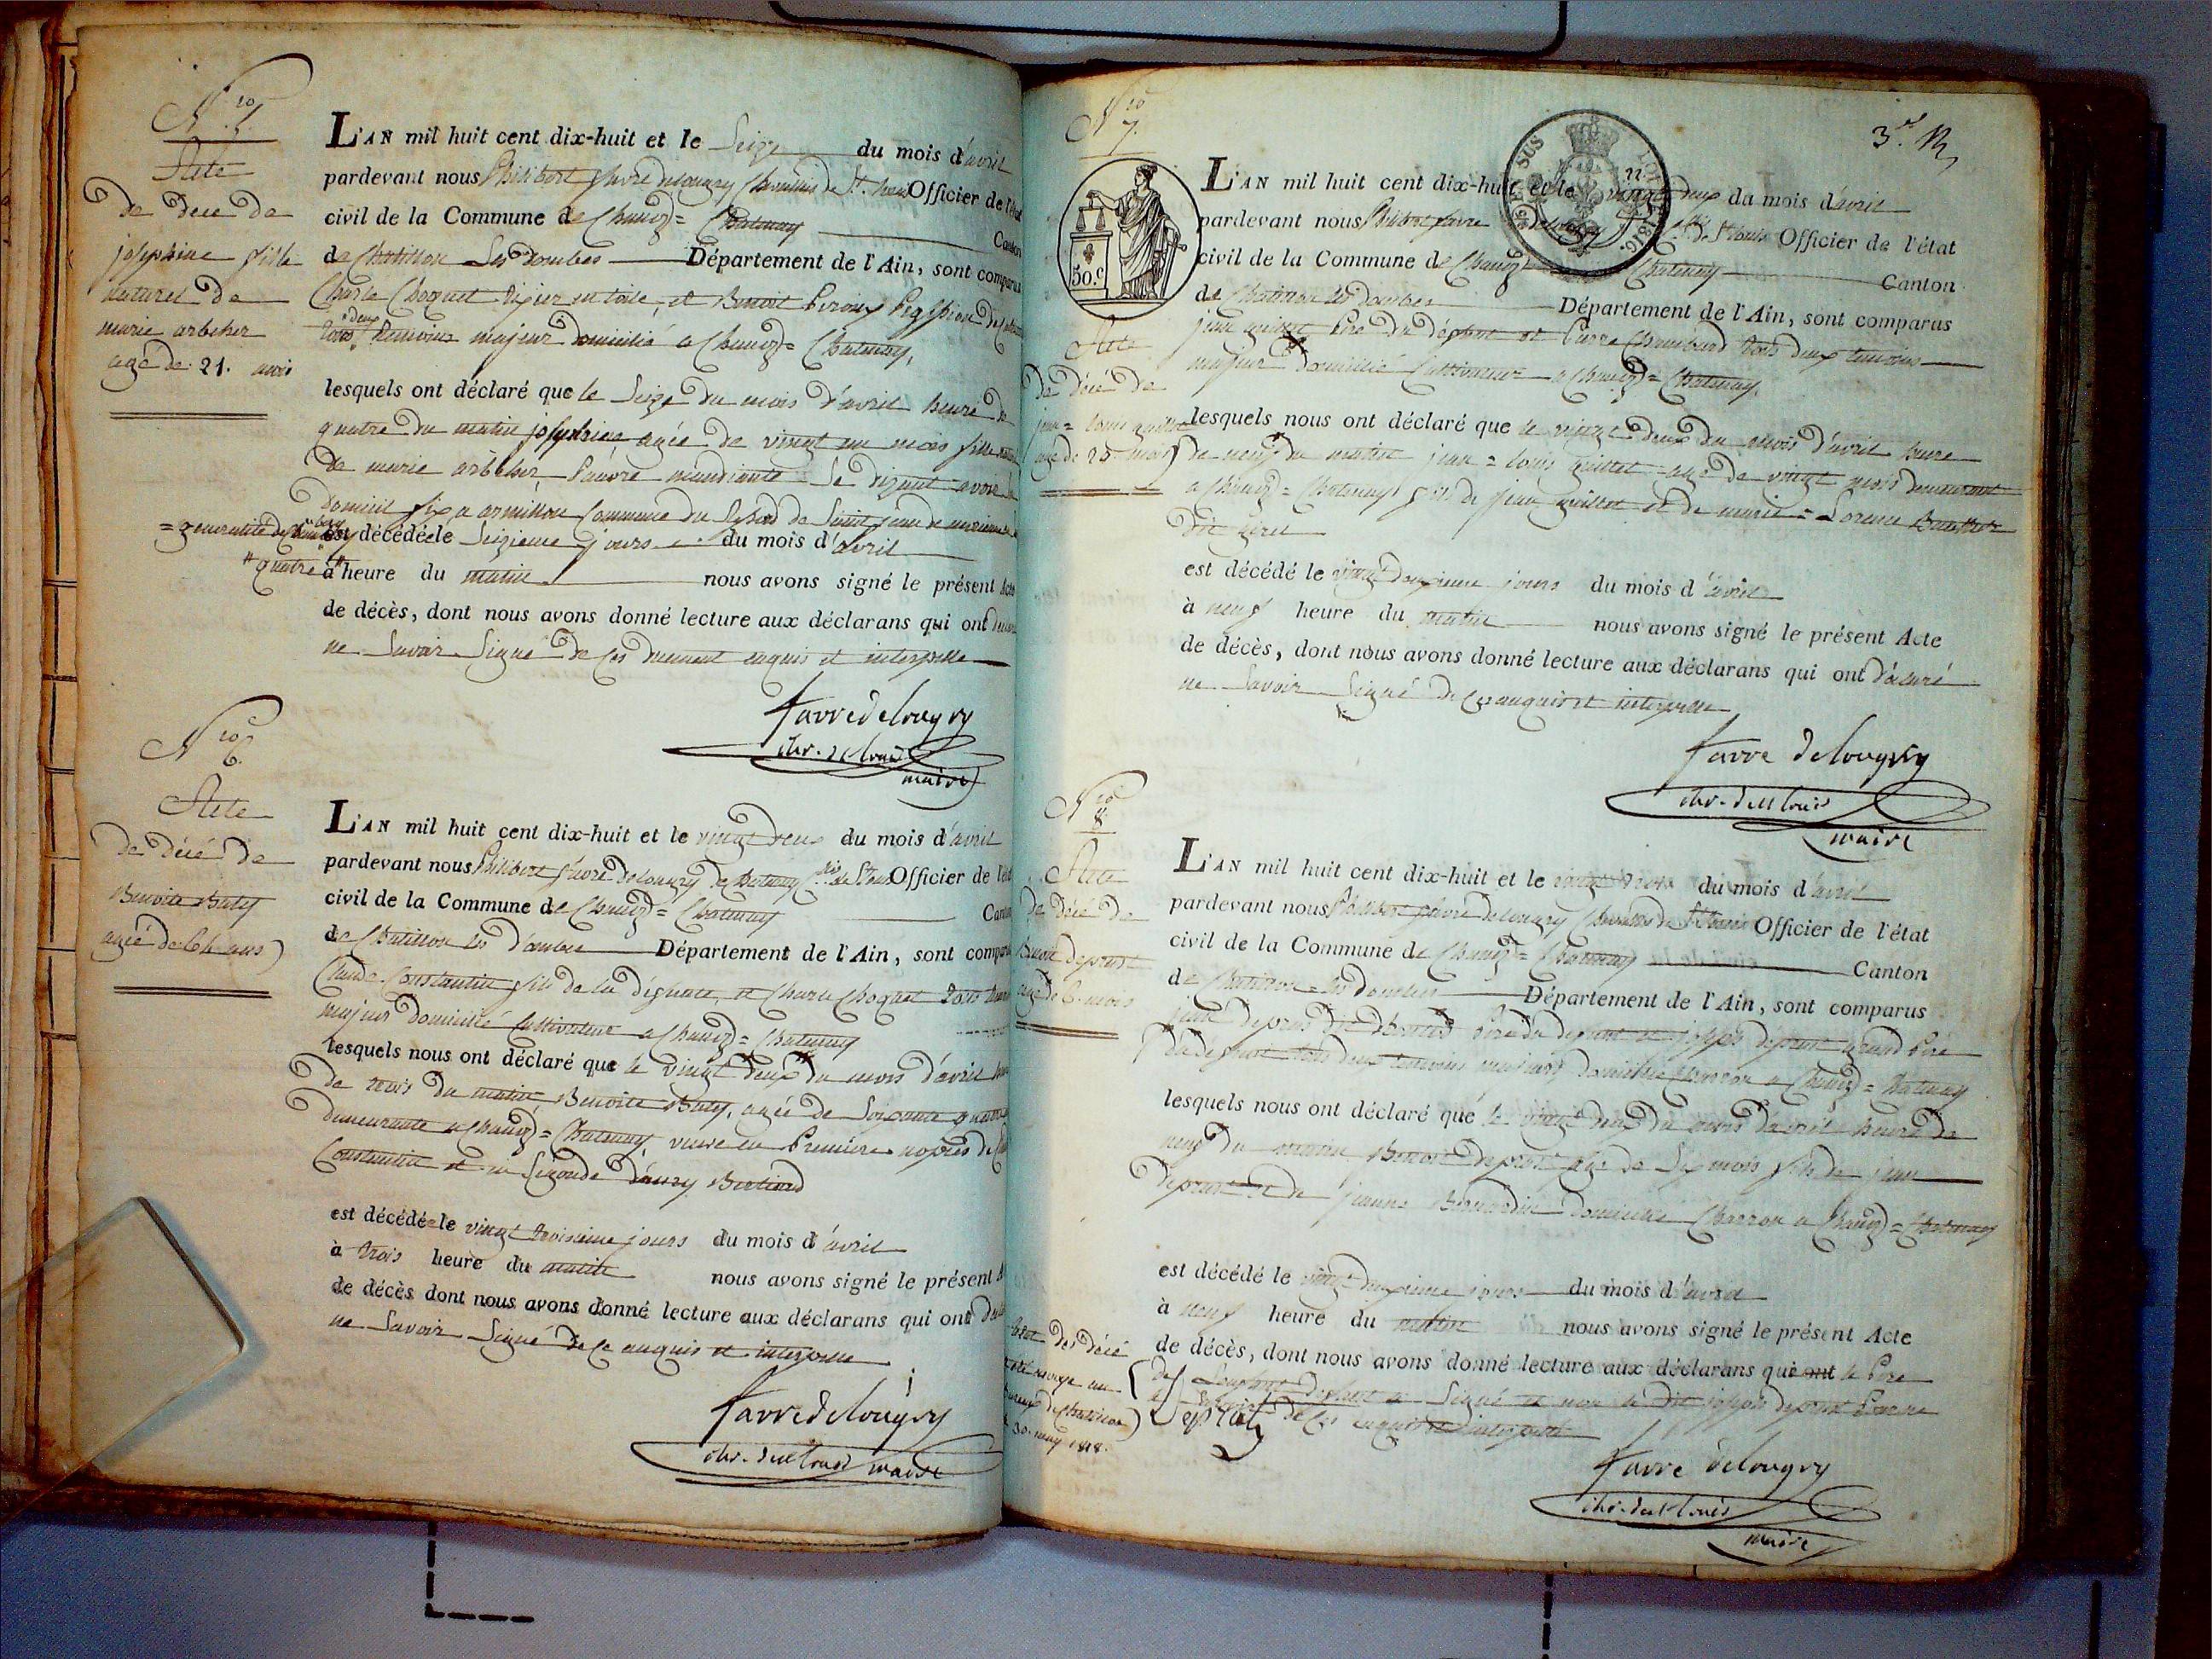 N.ro 5.
Acte
de décé de
josephine fille
naturel de
marie arbeher
agé de 21. mois
L'AN mil huit cent dix-huit et le Seize du mois d'avril
pardevant nous Philibert favre delougry Chevalier de St. Louis Officier de l'état
civil de la Commune de Chaney= Chatenay Canton
de Chatillon Les dombes Département de l'Ain, sont comparus
Charle Choquet tixier en toile, et Benoit
tous deux temoins majeur domicilié a Chatenay,
lesquels ont déclaré que le Seize du mois d'avril heure de
quatre du matin josephine agée de vingt un mois fille
de marie arbeher, Pauvre mandiante Se dizant avoir
domicil fix a Commune du de Saint jean de
=généralité de
est décédée le Seizieme jours du mois d'avril
"quatre" à heure du matin nous avons signé le présent Acte
de décès, dont nous avons donné lecture aux déclarans qui ont
ne Savoir Signé de Ces enquis et interpelle
favre delougry
chr. de st louis
maire
N.ro 6.
Acte
de décé de
Benoite Buty
agée de 64 ans
L'AN mil huit cent dix-huit et le vingt deux du mois d'avril
pardevant nous Philibert favre delougry de Chatenay de St Louis Officier de l'état
civil de la Commune de Chaney= Chatenay Canton
de Chatillon les dombes Département de l'Ain, sont comparus
Claude Constantin fils de la défunte, et Charle Choquet tous
majeur domicilié Cultivateur a Chaney= Chatenay
lesquels nous ont déclaré que le vingt deux du mois d'avril
de trois du matin Benoite Buty, agée de Soixante quatre
demeurante a Chaney= Chatenay veuve en Premiere nopces de
Constantin et en Segonde
est décédée le vingt troisieme jours du mois d'avril
à trois heure du matin nous avons signé le présent
de décès dont nous avons donné lecture aux déclarans qui ont
ne Savoir Signé de Ce enquis et interpelle
favre delougry
chr. de st louis maire
3.e
N.ro 7.
50.c
Acte
de décé de
jean= louis guillot
L'AN mil huit cent dix-huit et le vingt deux du mois d'avril
pardevant nous Philibert favre delougry St Louis Officier de l'état
civil de la Commune de Chaney Chatenay Canton
de Chatillon les dombes Département de l'Ain, sont comparus
jean guillot Père du défunt et Pierre Chambard tous deux temoins
majeur domicilié Cultivateur a Chaney= Chatenay,
lesquels nous ont déclaré que le vingt deux du mois d'avril heure
de neuf du matin jean= louis guillot agé de vingt mois demeurant
a Chaney= Chatenay fils de jean guillot et de marie= Lorence
est décédé le vingt deuxieme jours du mois d'avril
à neuf heure du matin nous avons signé le présent Acte
de décès, dont nous avons donné lecture aux déclarans qui ont déclaré
ne Savoir Signé de Ces enquis et interpelle
favre delougry
chr. de st louis
maire
N.ro 8.
Acte
de décé de
Benoit deprat
agé de 6. mois
L'AN mil huit cent dix-huit et le vingt trois du mois d'avril
pardevant nous Philibert favre delougry Chevalier de St Louis Officier de l'état
civil de la Commune de Chaney= Chatenay Canton
de Chatillon= les dombes Département de l'Ain, sont comparus
jean deprat Père du defunt et joseph deprat grand Père
du defunt tous deux temoins majeurs domicilié Charron a Chaney= Chatenay
lesquels nous ont déclaré que le vingt deux du mois d'avril heure de
neuf du matin Benoit deprat agé de Six mois fils de jean
deprat et de jeanne domicilié Charron a Chaney= Chatenay
est décédé le vingt deuxieme jours du mois d'avril
à neuf heure du matin nous avons signé le présent Acte
de décès, dont nous avons donné lecture aux déclarans qui ont le Père
a Signé et non le dit joseph deprat
de Ces enquis et interpelle
Deprat
des décé
au
de Chatillon
30. may 1818.
favre delougry
chr. de st louis
maire